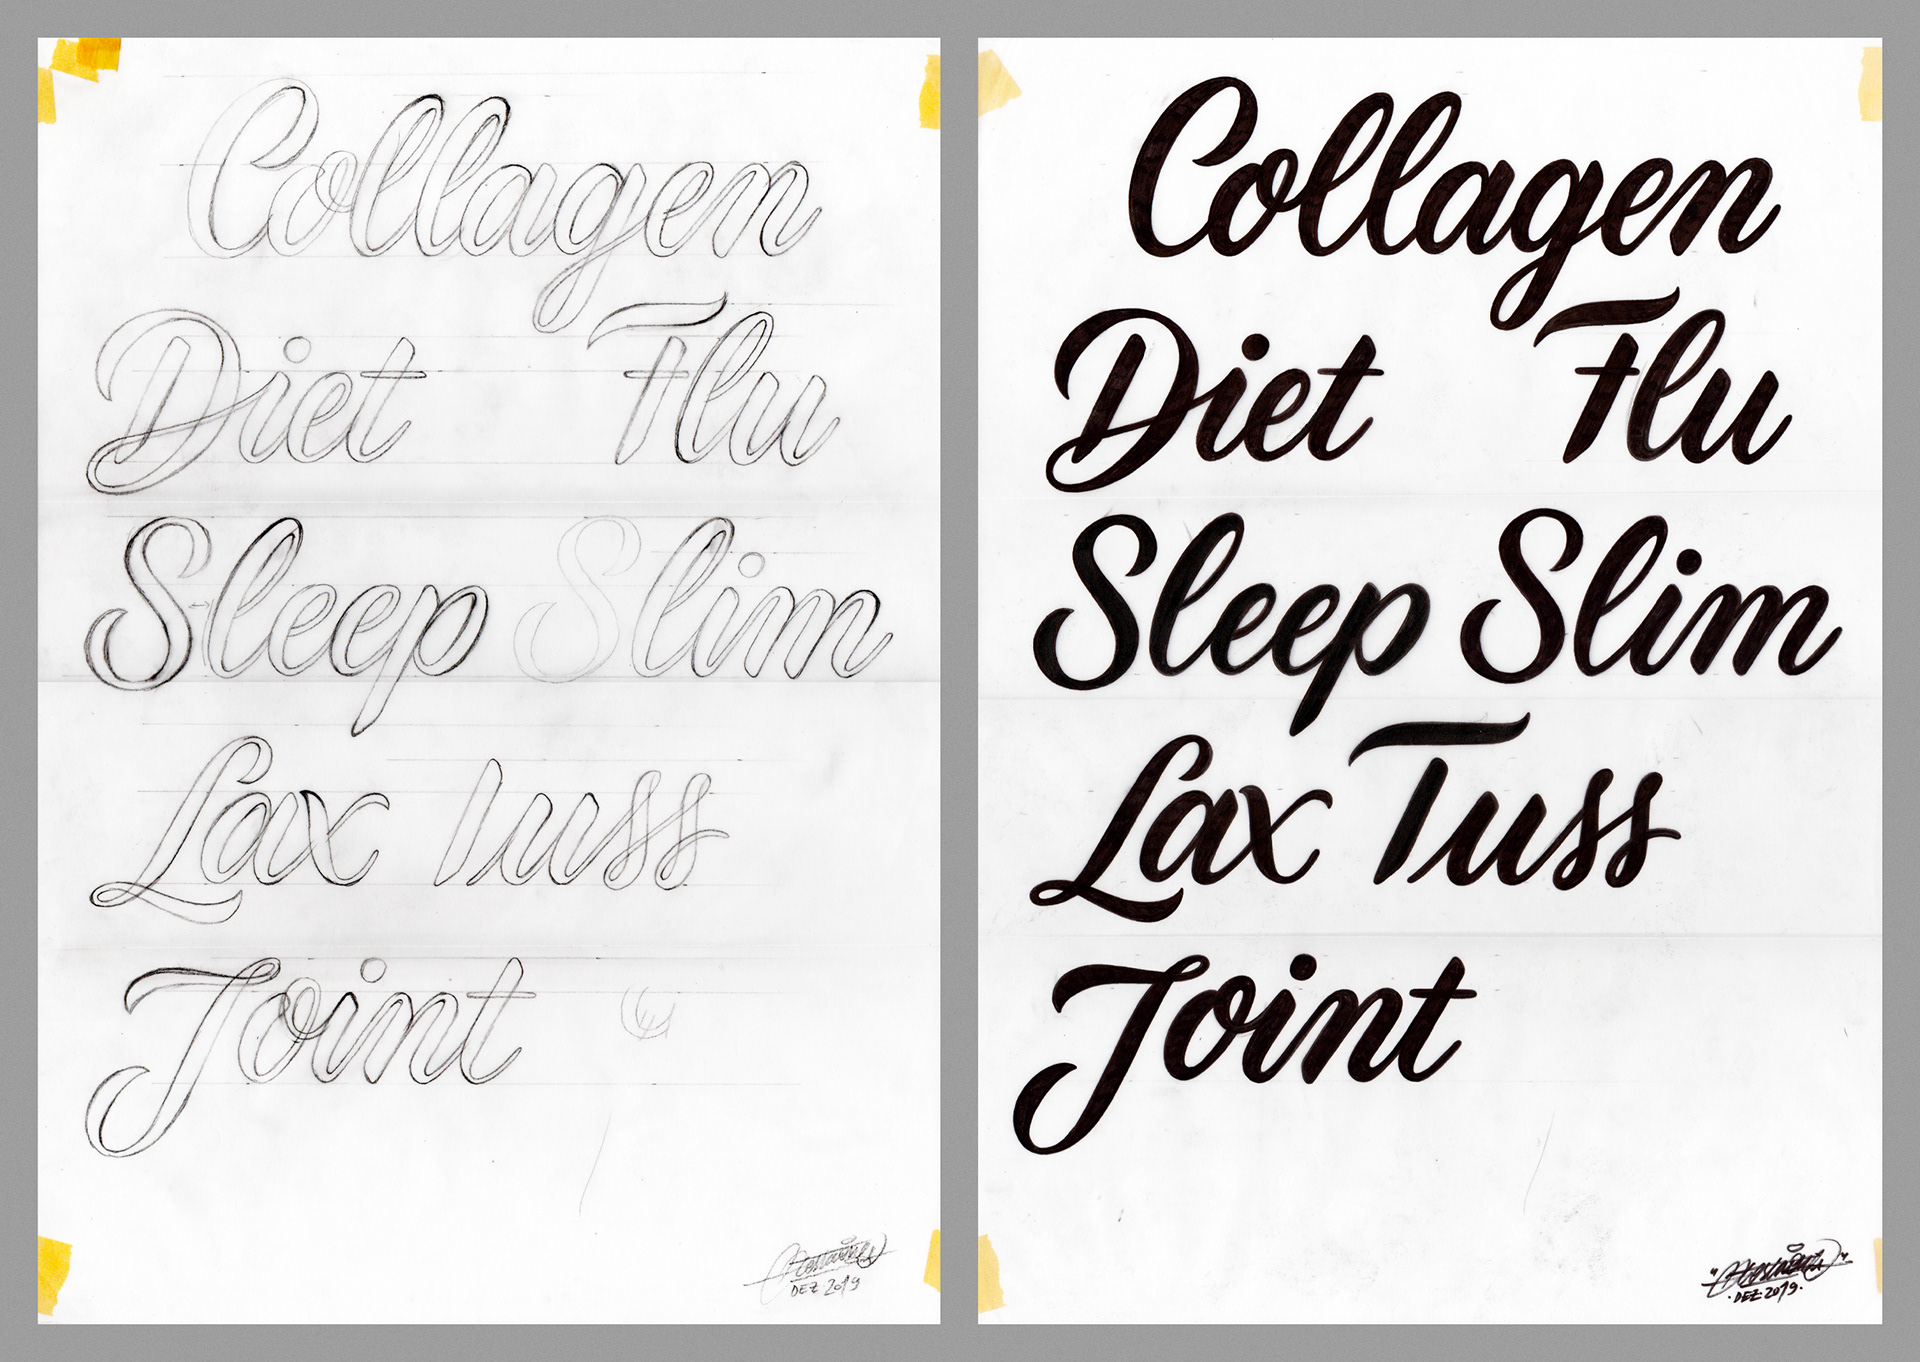 Collagen
Diet Flu
Sleep Slim
Lax Tuss
Joint
DEZ 2019
Collagen
Diet Flu
Sleep Slim
Lax Tuss
Joint
DEZ 2019.